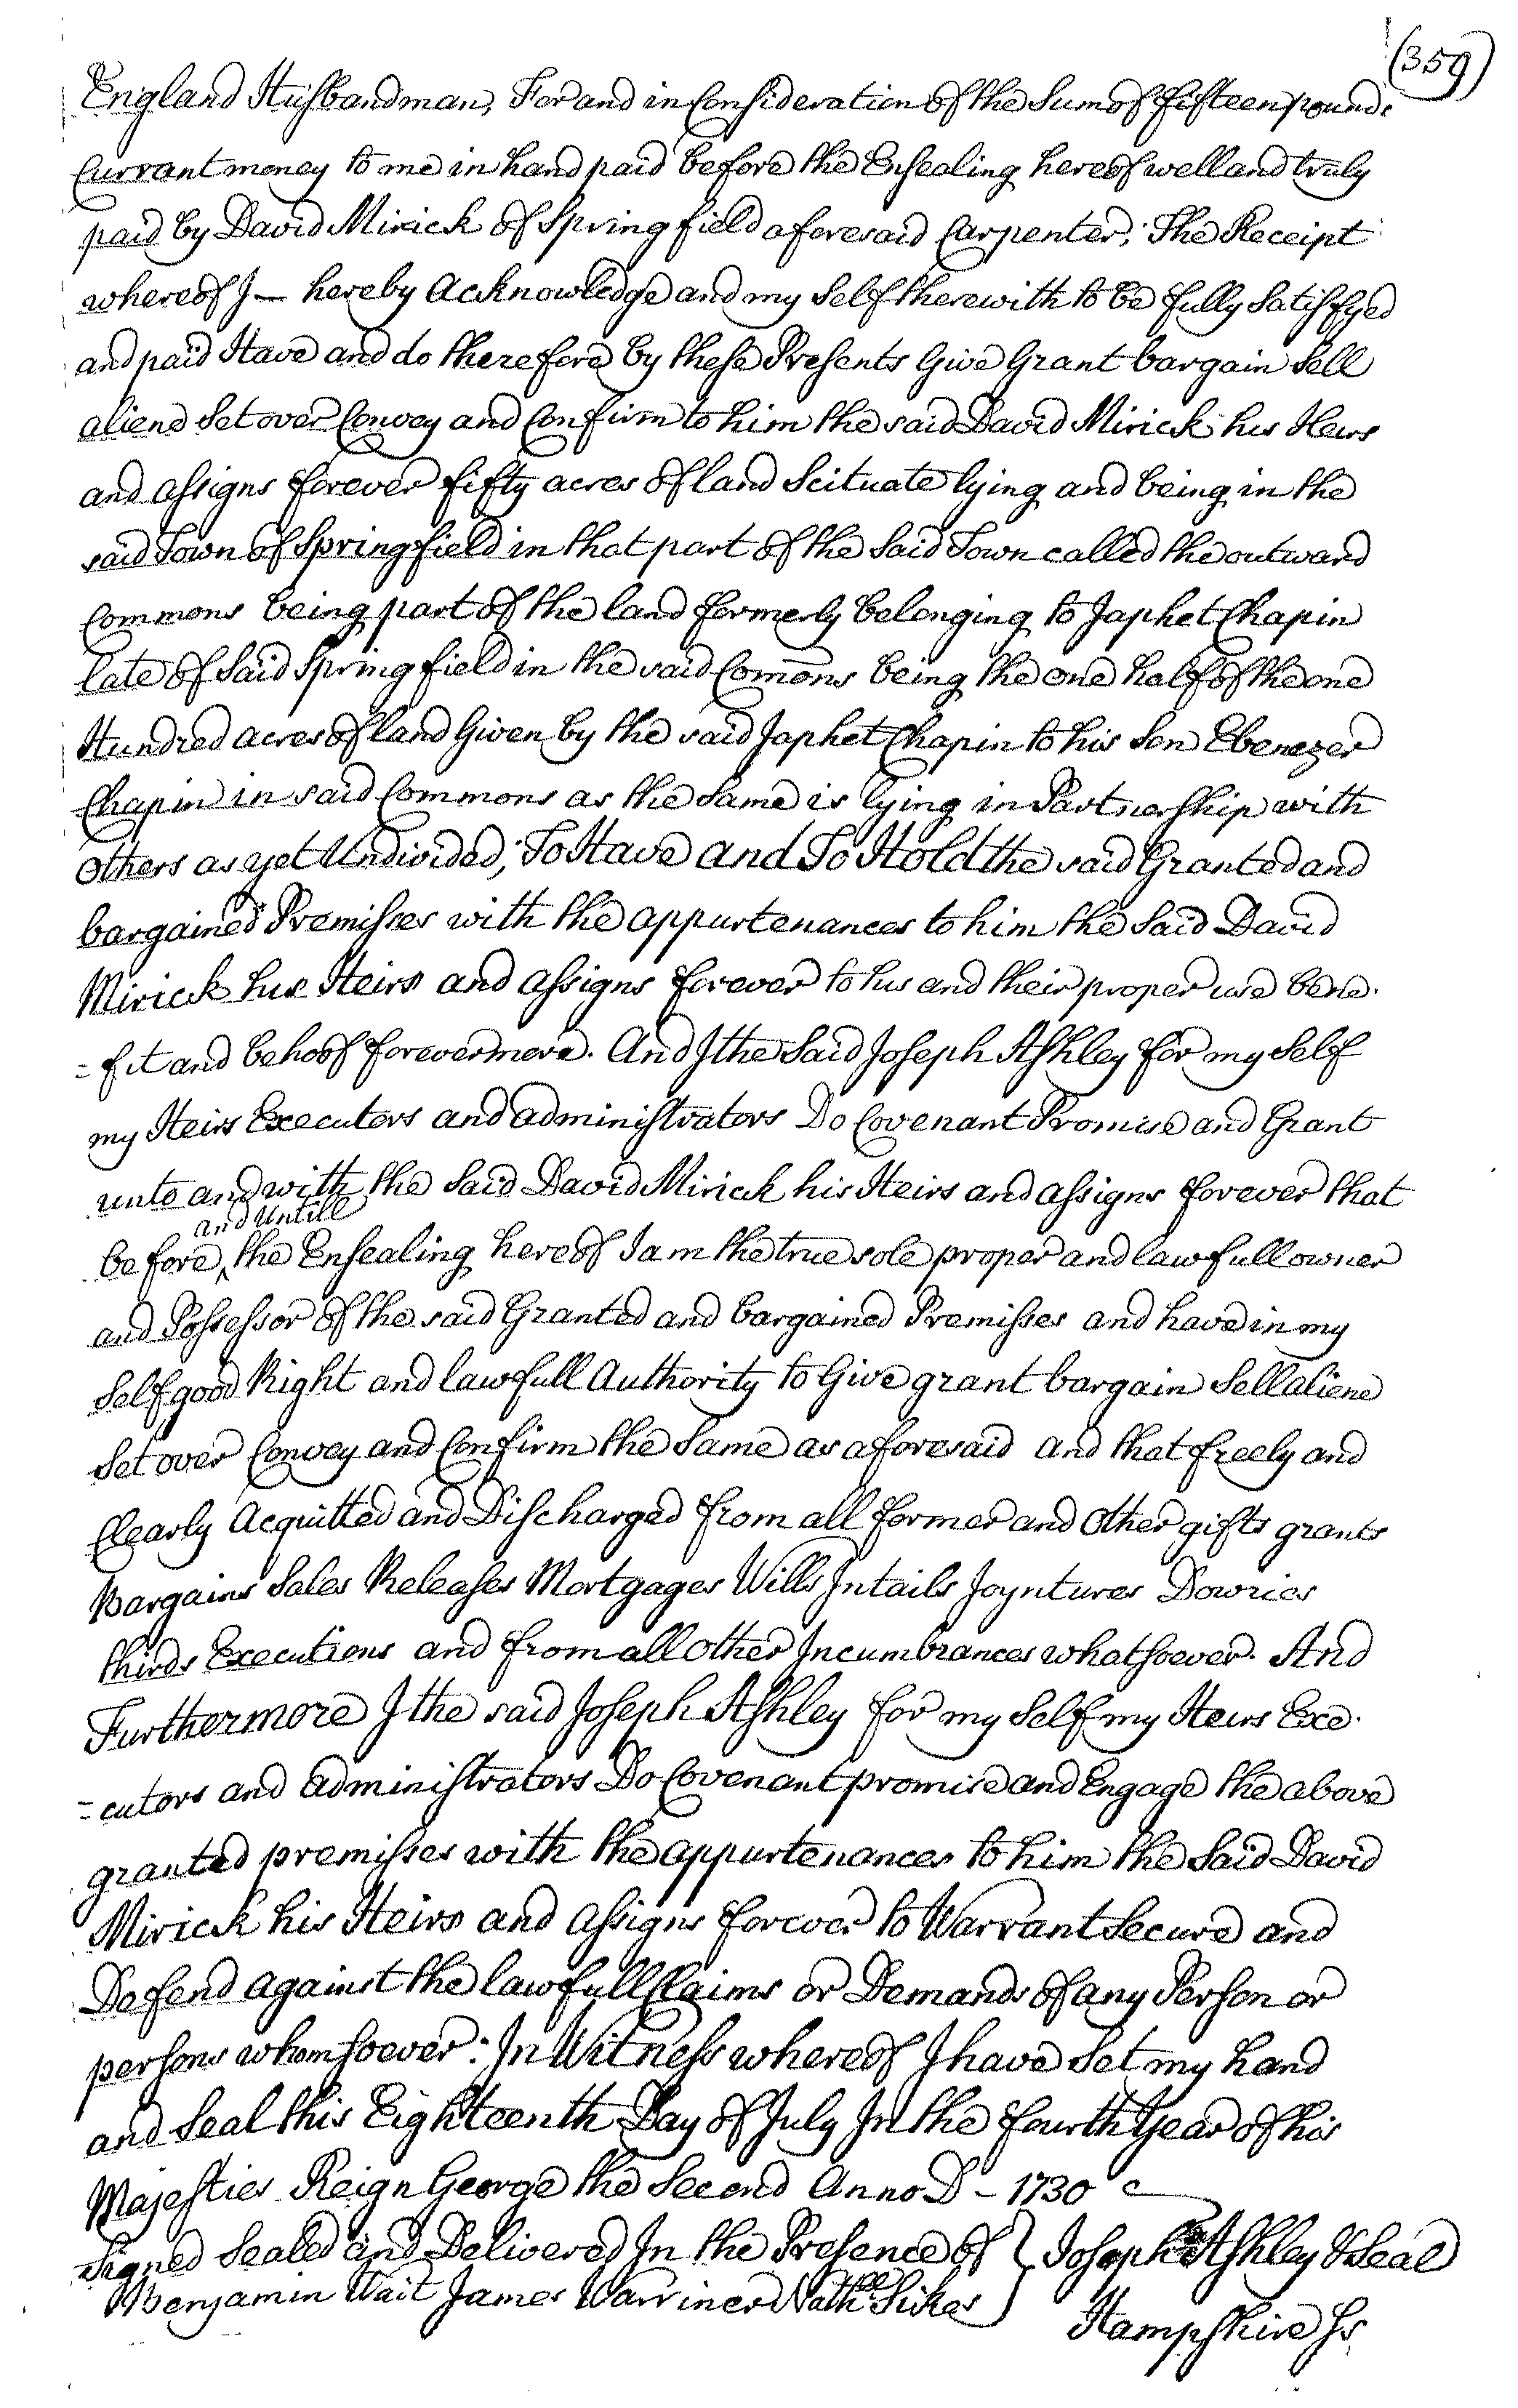 (359)
England Husbandman, For and in Consideration of the Sum of fifteen pounds
Currant money to me in hand paid before the Ensealing hereof well and truly
paid by David Mirick of Springfield aforesaid Carpenter; The Receipt
whereof I — hereby Acknowledge and my Self therewith to be fully Satisfyed
and paid Have and do therefore by these Presents Give Grant bargain Sell
aliene Set over Convey and Confirm to him the said David Mirick his Heirs
and assigns forever fifty acres of land Scituate lying and being in the
said Town of Springfield in that part of the Said Town called the outward
Commons being part of the land formerly belonging to Japhet Chapin
late of Said Springfield in the said Comōns being the one half of the one
Hundred acres of land Given by the said Japhet Chapin to his Son Ebenezer
Chapin in said Commons as the Same is lying in Partnership with
Others as yet Undivided; To Have and To Hold the said Granted and
bargained Premisses with the appurtenances to him the Said David
Mirick his Heirs and assigns forever to his and their proper use bene-
=fit and behoof forevermore. And I the Said Joseph Ashley for my Self
my Heirs Executors and administrators Do Covenant Promise and Grant
unto and with the Said David Mirick his Heirs and assigns forever that
and Untill
before ‸ the Ensealing hereof I am the true sole proper and lawfull owner
and Possessor of the said Granted and bargained Premisses and have in my
Self good Right and lawfull Authority to Give grant bargain Sell aliene
Set over Convey and Confirm the Same as aforesaid and that freely and
Clearly Acquitted and Discharged from all former and Other gifts grants
Bargains Sales Releases Mortgages Wills Intails Joyntures Dowries
thirds Executions and from all Other Incumbrances whatsoever. And
Furthermore I the said Joseph Ashley for my Self my Heirs Exe-
=cutors and administrators Do Covenant promise and Engage the above
granted premisses with the appurtenances to him the Said David
Mirick his Heirs and assigns forever to Warrant Secure and
Defend against the lawfull Claims or Demands of any Person or
persons whomsoever: In Witness whereof I have Set my hand
and Seal this Eighteenth Day of July In the fourth Year of his
Majesties Reign George the Second Anno D - 1730
Signed Sealed and Delivered In the Presence of } Joseph Ashley & Seal
Benjamin Wait James Warriner Nathll Sikes }
Hampshire Ss.